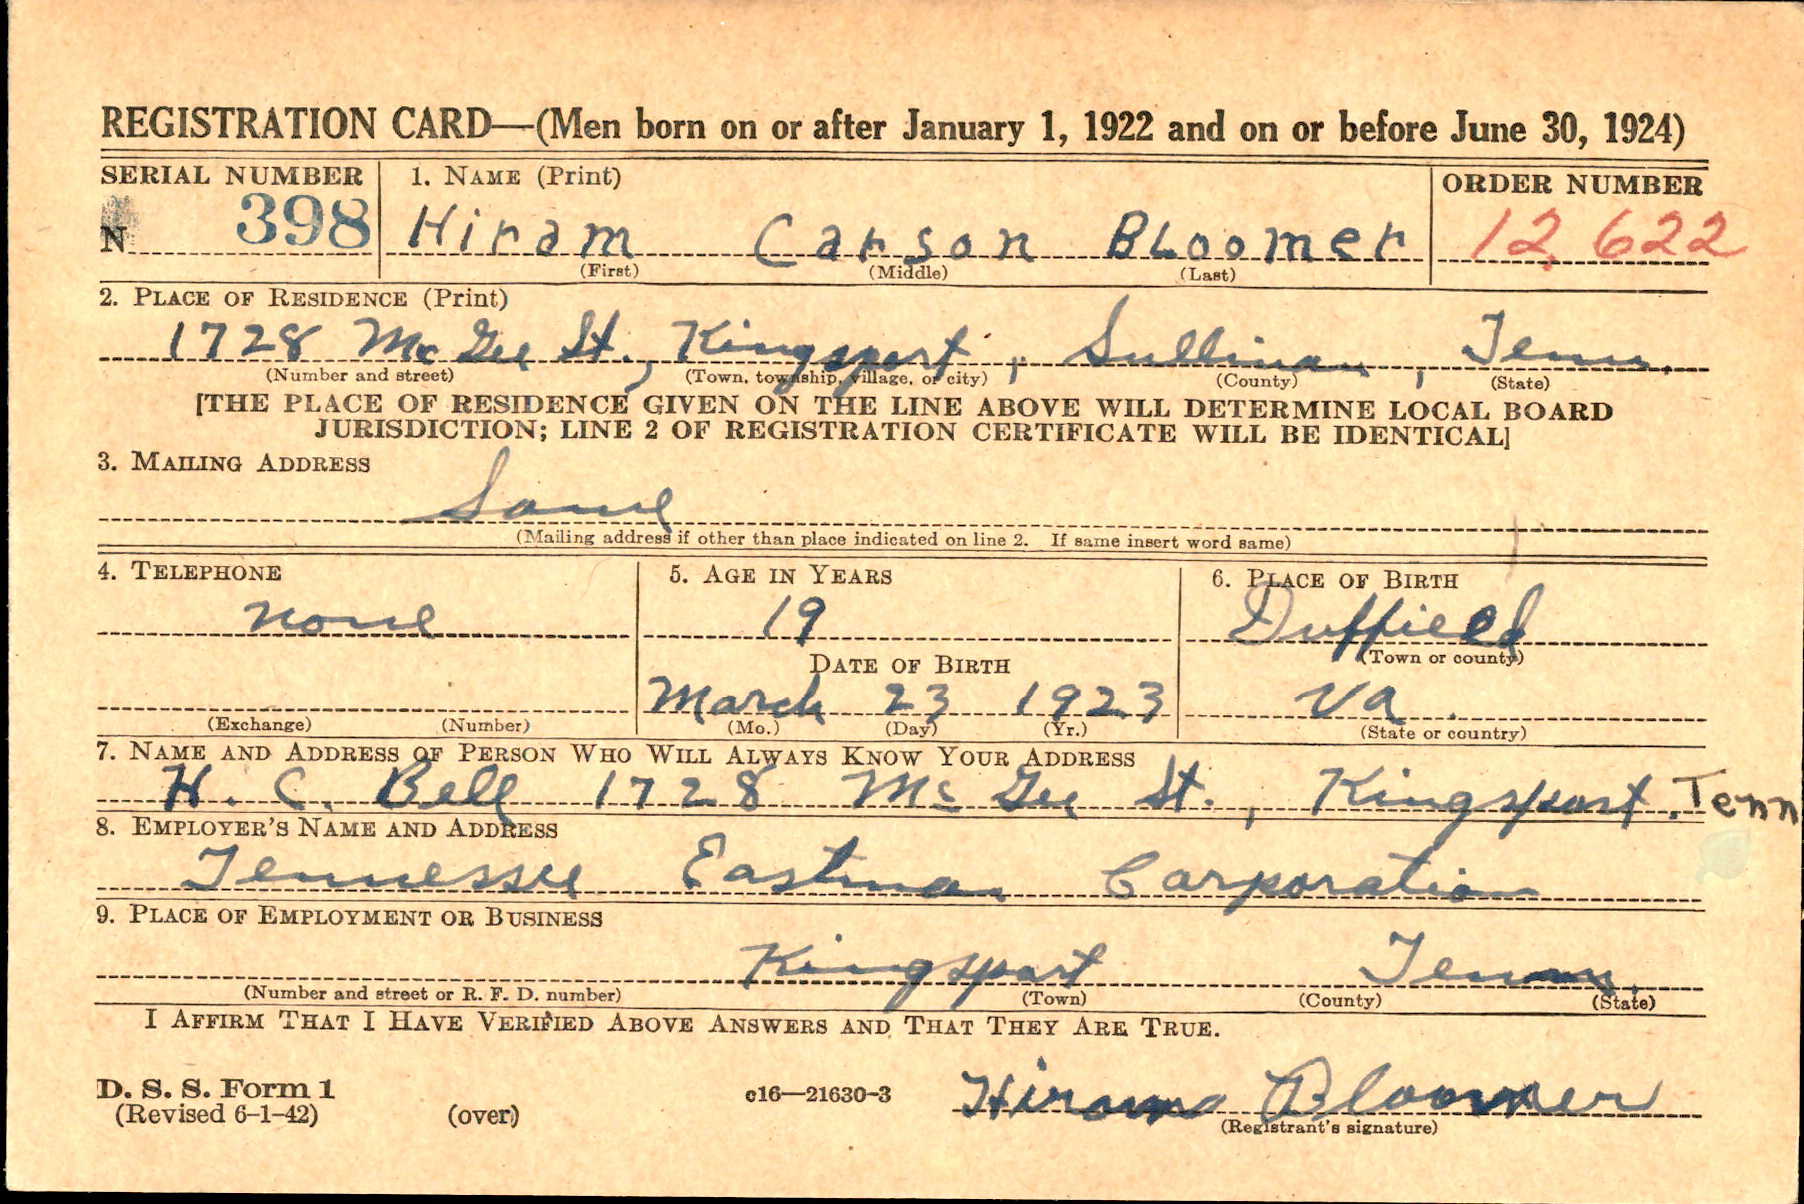 REGISTRATION CARD—(Men born on or after January 1, 1922 and on or before June 30, 1924)
SERIAL NUMBER 1. NAME (Print) ORDER NUMBER
N 398 Hiram Carson Bloomer 12,622
(First) (Middle) (Last)
2. PLACE OF RESIDENCE (Print)
1728 McGee St., Kingsport, Sullivan, Tenn.
(Number and street) (Town, township, village, or city) (County) (State)
[THE PLACE OF RESIDENCE GIVEN ON THE LINE ABOVE WILL DETERMINE LOCAL BOARD
JURISDICTION; LINE 2 OF REGISTRATION CERTIFICATE WILL BE IDENTICAL]
3. MAILING ADDRESS
Same
(Mailing address if other than place indicated on line 2. If same insert word same)
4. TELEPHONE 5. AGE IN YEARS 6. PLACE OF BIRTH
none 19 Duffield
(Town or county)
DATE OF BIRTH
March 23 1923 Va.
(Exchange) (Number) (Mo.) (Day) (Yr.) (State or country)
7. NAME AND ADDRESS OF PERSON WHO WILL ALWAYS KNOW YOUR ADDRESS
H. C. Bell 1728 McGee St., Kingsport. Tenn
8. EMPLOYER'S NAME AND ADDRESS
Tennessee Eastman Corporation
9. PLACE OF EMPLOYMENT OR BUSINESS
Kingsport Tenn.
(Number and street or R. F. D. number) (Town) (County) (State)
I AFFIRM THAT I HAVE VERIFIED ABOVE ANSWERS AND THAT THEY ARE TRUE.
D. S. S. Form 1
(Revised 6-1-42) (over) c16—21630-3 Hiram Bloomer
(Registrant's signature)